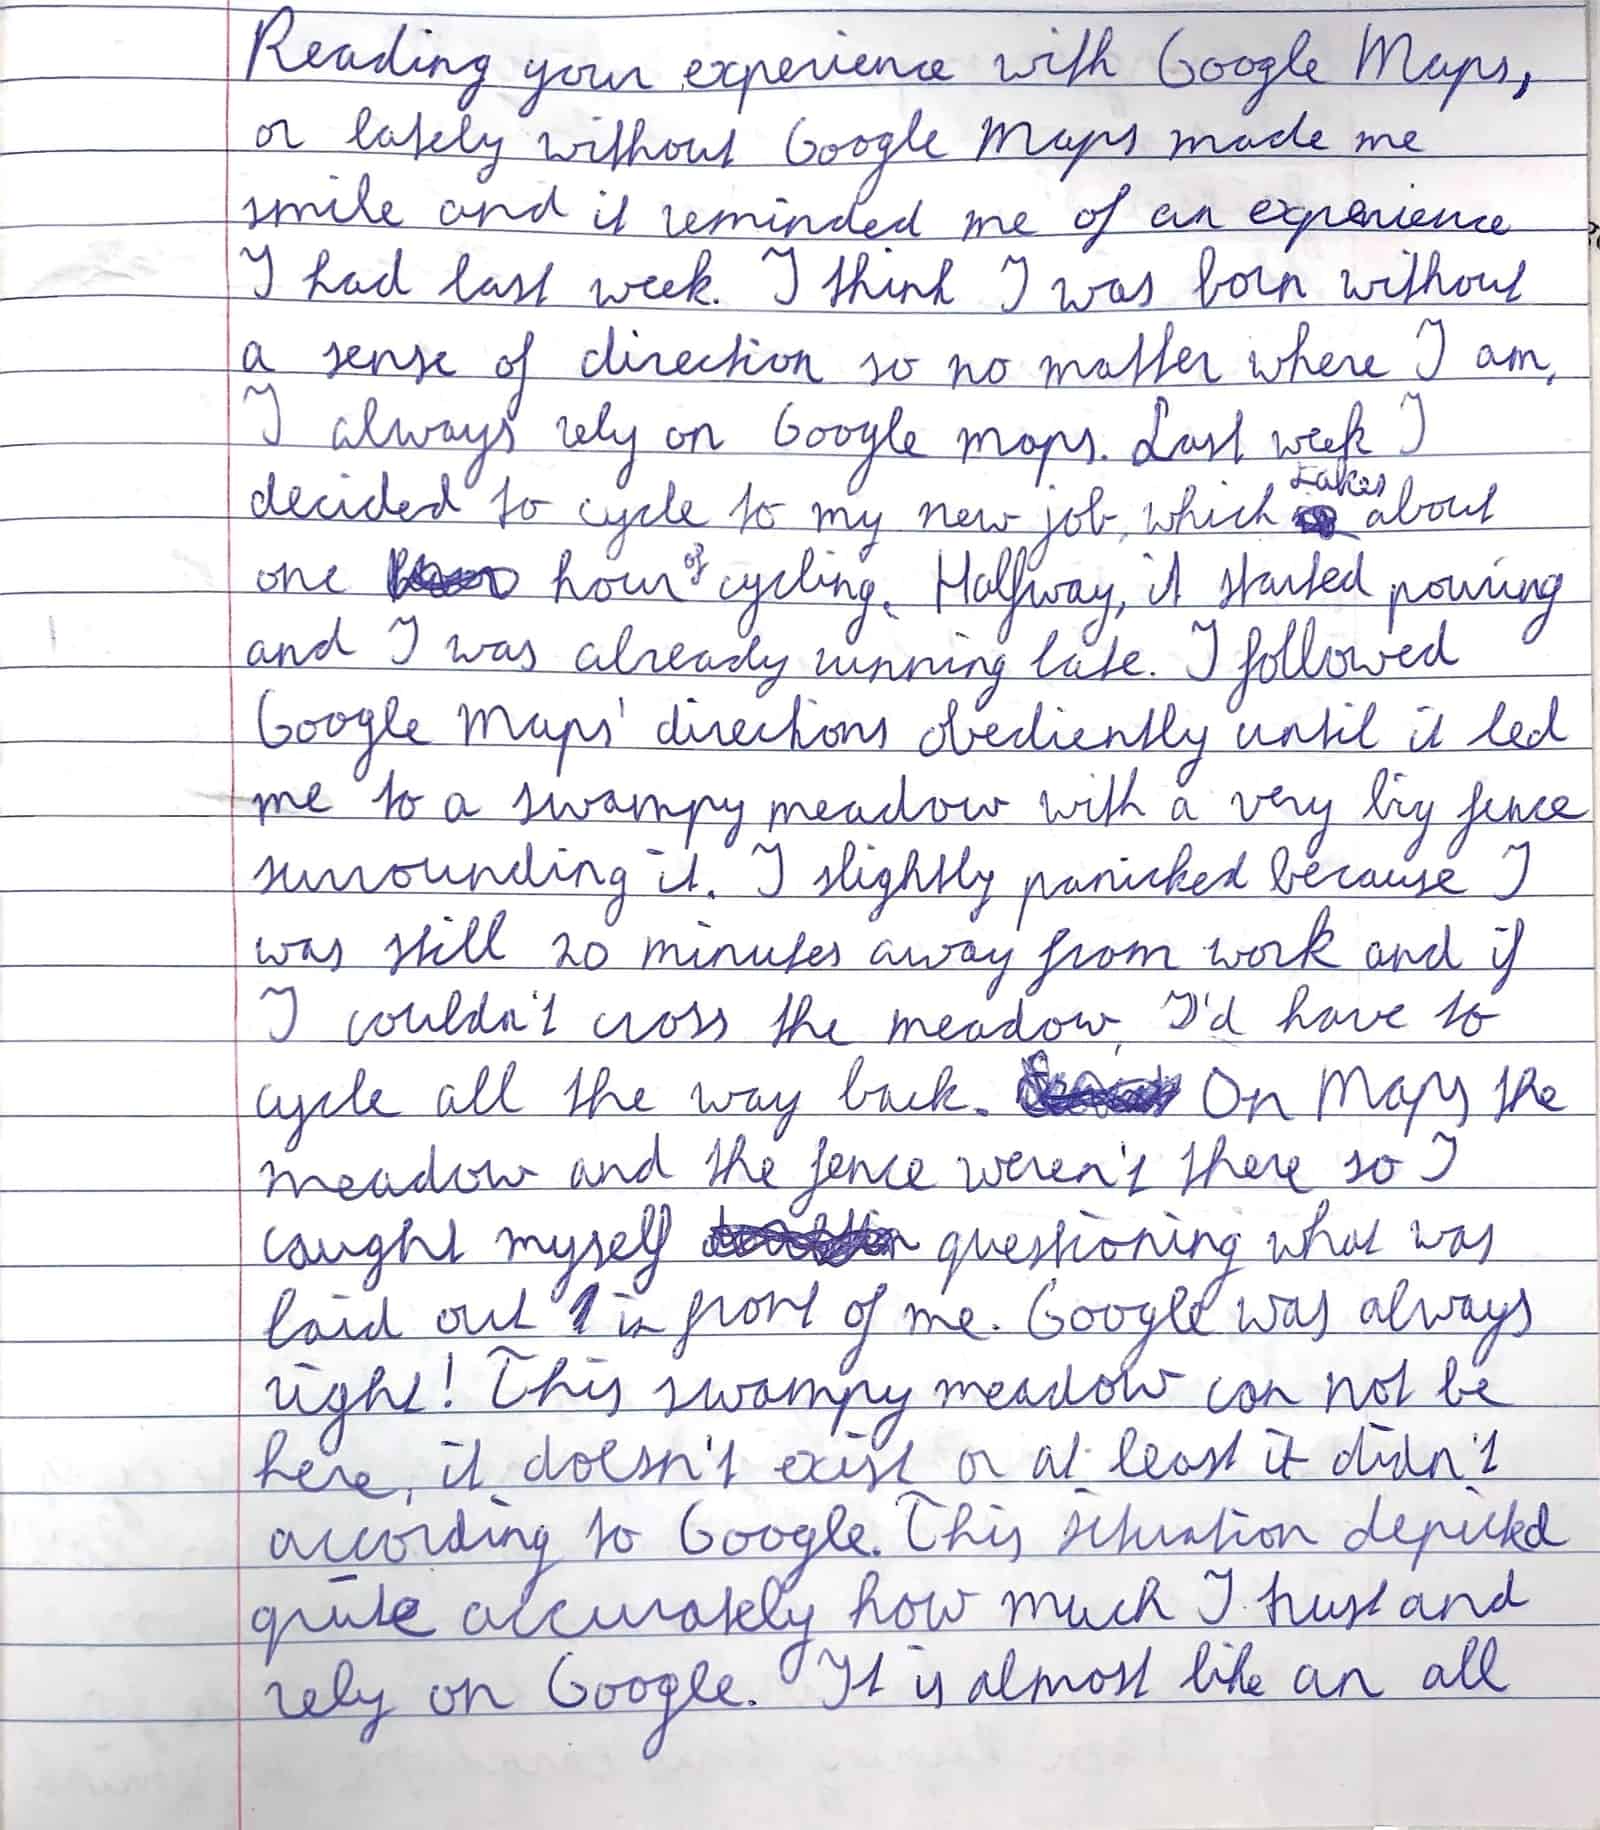 Reading your experience with Google Maps,
or lately without Google Maps made me
smile and it reminded me of an experience
I had last week. I think I was born without
a sense of direction so no matter where I am,
I always rely on Google maps. Last week I
decided to cycle to my new job, which takes about
one hour of cycling. Halfway, it started pouring
and I was already running late. I followed
Google Maps' directions obediently until it led
me to a swampy meadow with a very big fence
surrounding it. I slightly panicked because I
was still 20 minutes away from work and if
I couldn't cross the meadow, I'd have to
cycle all the way back. On Maps the
meadow and the fence weren't there so I
caught myself questioning what was
laid out in front of me. Google was always
right! This swampy meadow can not be
here, it doesn't exist or at least it didn't
according to Google. This situation depicted
quite accurately how much I trust and
rely on Google. It is almost like an all